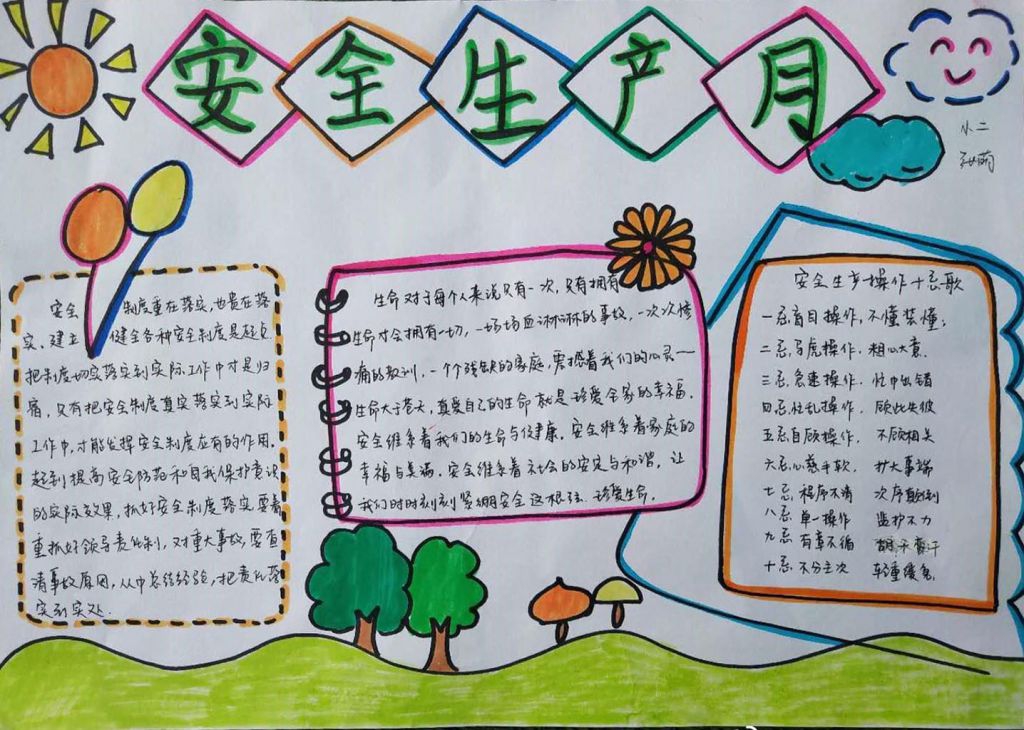 安全生产月
小二
安全 制度重在落实,也贵在落
实。建立 健全各种安全制度是起点
把制度切实落实到实际工作中才是归
宿,只有把安全制度真实落实到实际
工作中,才能发挥安全制度应有的作用。
起到提高安全防范和自我保护意识
的实际效果,抓好安全制度落实要着
重抓好领导责任制,对重大事故,要查
清事故原因,从中总结经验,把责任落
实到实处.
生命对于每个人来说只有一次,只有拥有
生命才会拥有一切,一场场血淋淋的事故,一次次惨
痛的教训,一个个残缺的家庭,震撼着我们的心灵——
生命大于苍天,真爱自己的生命就是珍爱全家的幸福,
安全维系着我们的生命与健康,安全维系着家庭的
幸福与美满,安全维系着社会的安定与和谐,让
我们时时刻刻紧绷安全这根弦、珍爱生命.
安全生产操作十忌歌
一忌盲目操作,不懂装懂;
二忌马虎操作,粗心大意.
三忌急速操作,忙中出错
四忌忙乱操作,顾此失彼
五忌自顾操作,不顾相关
六忌心慈手软,扩大事端
七忌程序不清 次序颠倒
八忌单一操作 监护不力
九忌有章不循
十忌不分主次 轻重缓急